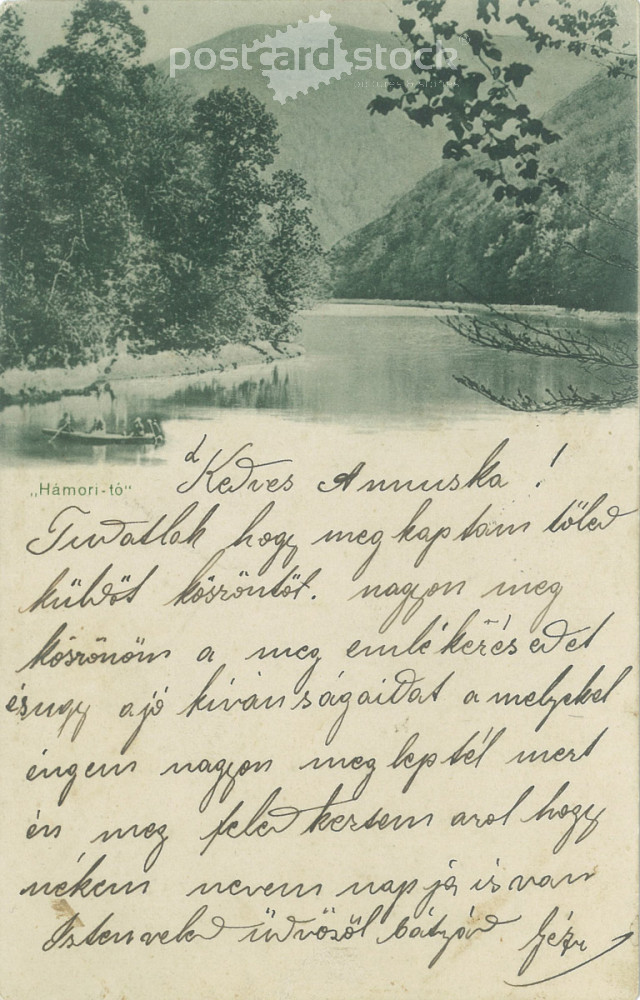 postcard stock
„Hámori-tó"
Kedves Annuska!
Tudatlak hogy meg kaptam tőled
küldöt köszöntöt. nagyon meg
köszönöm a meg emlékezésedet
ésugy a jó kivánságaidat a melyekel
engem nagyon meg leptél mert
én meg feled keztem arol hogy
nékem nevem napja is van
Isten veled üdvözöl bátyád Géza